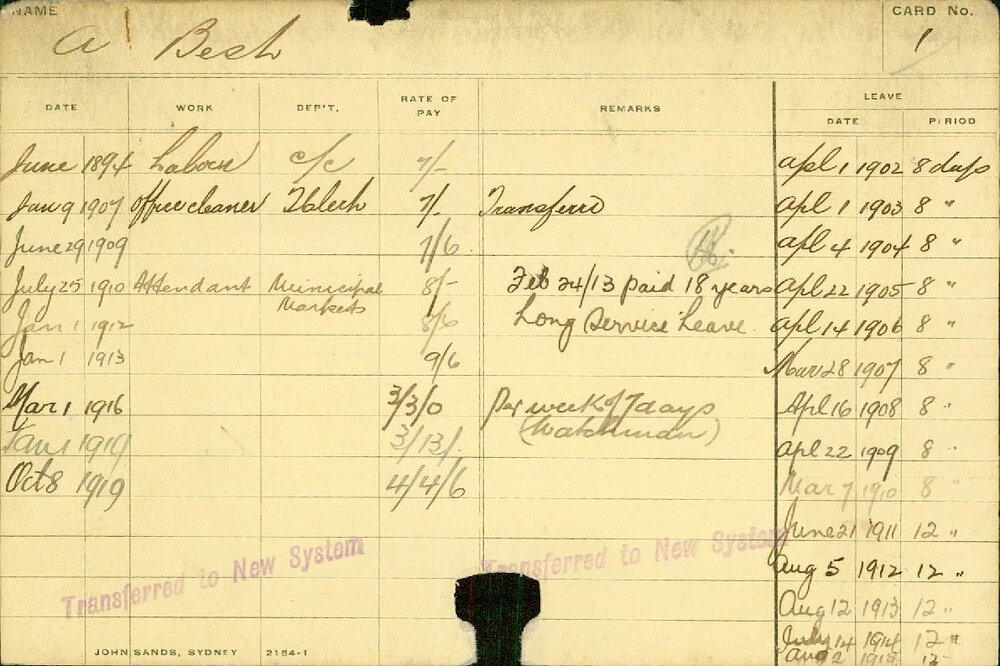 NAME
A Besh
CARD No.
1
DATE WORK DEP'T. RATE OF PAY REMARKS LEAVE
DATE PERIOD
June 1894 Laborer c/c 7/- Apl 1 1902 8 days
Jan 9 1907 Office cleaner 7/- Transferred Apl 1 1903 8 "
June 29 1909 7/6 Apl 4 1904 8 "
July 25 1910 Attendant Municipal Markets 8/- Feb 24/13 paid 18 years Apl 22 1905 8 "
Jan 1 1912 8/6 Long Service Leave Apl 14 1906 8 "
Jan 1 1913 9/6 Mar 28 1907 8 "
Mar 1 1916 3/3/0 Per week of 7 days Apl 16 1908 8 "
(Watchman)
Jan 1 1919 3/13/- Apl 22 1909 8 "
Oct 8 1919 4/4/6 Mar 7 1910 8 "
June 21 1911 12 "
Transferred to New System Transferred to New System
Aug 5 1912 12 "
Aug 12 1913 12 "
July 14 1914 12 "
Aug 2 1915 12
JOHN SANDS, SYDNEY 2154-1